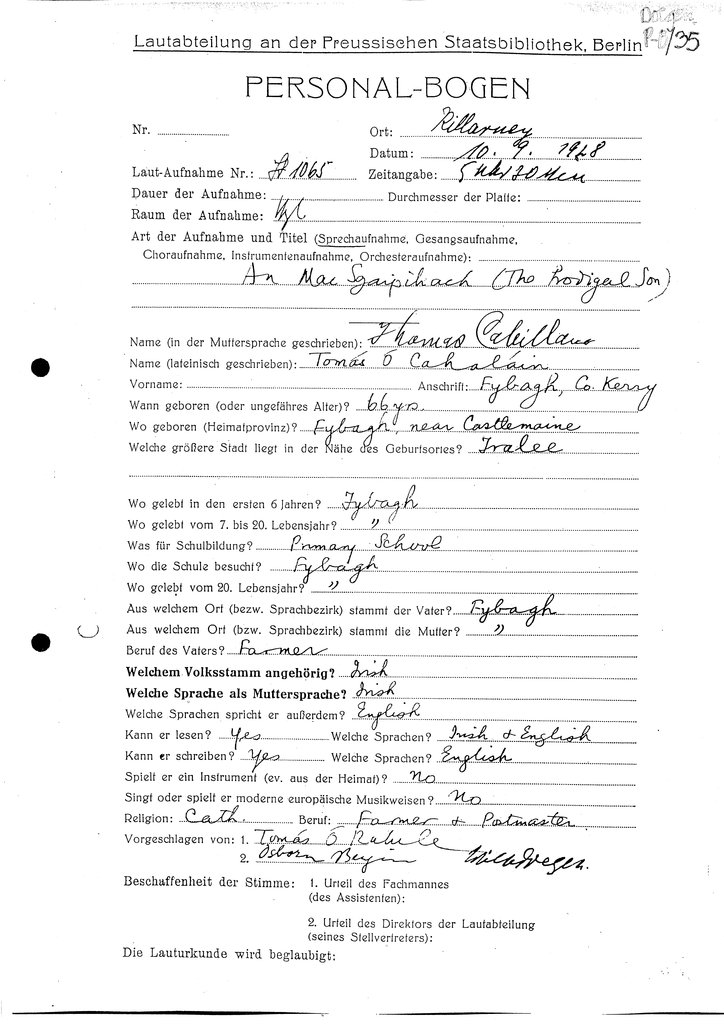 /35
Lautabteilung an der Preussischen Staatsbibliothek, Berlin
PERSONAL-BOGEN
Nr. Ort: Killarney
Datum: 10. 9. 1928
Laut-Aufnahme Nr.: 1065 Zeitangabe: 5 Uhr 20 Min
Dauer der Aufnahme: Durchmesser der Platte:
Raum der Aufnahme:
Art der Aufnahme und Titel (Sprechaufnahme, Gesangsaufnahme,
Choraufnahme, Instrumentenaufnahme, Orchesteraufnahme):
An Mac Sgaipitheach (The Prodigal Son)
Name (in der Muttersprache geschrieben): Thomas Cahillane
Name (lateinisch geschrieben): Tomás Ó Cahaláin
Vorname: Anschrift: Fybagh, Co. Kerry
Wann geboren (oder ungefähres Alter)? 66 yrs.
Wo geboren (Heimatprovinz)? Fybagh, near Castlemaine
Welche größere Stadt liegt in der Nähe des Geburtsortes? Tralee
Wo gelebt in den ersten 6 Jahren? Fybagh
Wo gelebt vom 7. bis 20. Lebensjahr? "
Was für Schulbildung? Primary School
Wo die Schule besucht? Fybagh
Wo gelebt vom 20. Lebensjahr? "
Aus welchem Ort (bezw. Sprachbezirk) stammt der Vater? Fybagh
Aus welchem Ort (bzw. Sprachbezirk) stammt die Mutter? "
Beruf des Vaters? Farmer
Welchem Volksstamm angehörig? Irish
Welche Sprache als Muttersprache? Irish
Welche Sprachen spricht er außerdem? English
Kann er lesen? Yes Welche Sprachen? Irish & English
Kann er schreiben? Yes Welche Sprachen? English
Spielt er ein Instrument (ev. aus der Heimat)? No
Singt oder spielt er moderne europäische Musikweisen? No
Religion: Cath. Beruf: Farmer & Postmaster
Vorgeschlagen von: 1. Tomás Ó
2. Osborn Bergin
Beschaffenheit der Stimme: 1. Urteil des Fachmannes
(des Assistenten):
2. Urteil des Direktors der Lautabteilung
(seines Stellvertreters):
Die Lauturkunde wird beglaubigt: